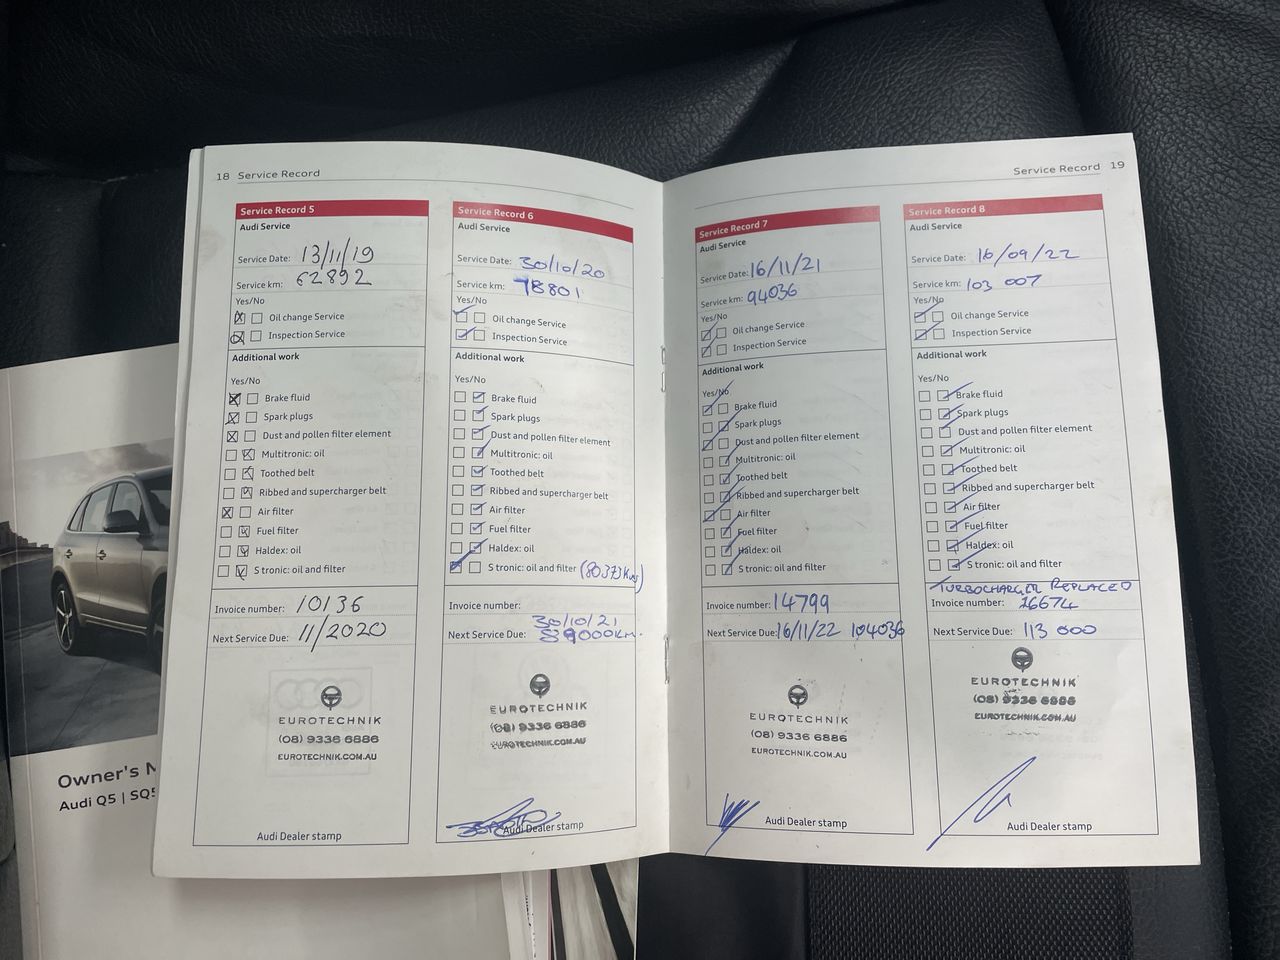 18 Service Record
Service Record 5
Audi Service
Service Date: 13/11/19
Service km: 62892
Yes/No
Oil change Service
Inspection Service
Additional work
Yes/No
Brake fluid
Spark plugs
Dust and pollen filter element
Multitronic: oil
Toothed belt
Ribbed and supercharger belt
Air filter
Fuel filter
Haldex: oil
S tronic: oil and filter
Invoice number: 10136
Next Service Due: 11/2020
EUROTECHNIK
(08) 9336 6886
EUROTECHNIK.COM.AU
Audi Dealer stamp
Service Record 6
Audi Service
Service Date: 30/10/20
Service km: 78801
Yes/No
Oil change Service
Inspection Service
Additional work
Yes/No
Brake fluid
Spark plugs
Dust and pollen filter element
Multitronic: oil
Toothed belt
Ribbed and supercharger belt
Air filter
Fuel filter
Haldex: oil
S tronic: oil and filter (80373Kms)
Invoice number:
30/10/21
Next Service Due: 89000Km.
EUROTECHNIK
(08) 9336 6886
EUROTECHNIK.COM.AU
Audi Dealer stamp
Service Record 19
Service Record 7
Audi Service
Service Date: 16/11/21
Service km: 94036
Yes/No
Oil change Service
Inspection Service
Additional work
Yes/No
Brake fluid
Spark plugs
Dust and pollen filter element
Multitronic: oil
Toothed belt
Ribbed and supercharger belt
Air filter
Fuel filter
Haldex: oil
S tronic: oil and filter
Invoice number: 14799
Next Service Due: 16/11/22 104036
EUROTECHNIK
(08) 9336 6886
EUROTECHNIK.COM.AU
Audi Dealer stamp
Service Record 8
Audi Service
Service Date: 16/09/22
Service km: 103 007
Yes/No
Oil change Service
Inspection Service
Additional work
Yes/No
Brake fluid
Spark plugs
Dust and pollen filter element
Multitronic: oil
Toothed belt
Ribbed and supercharger belt
Air filter
Fuel filter
Haldex: oil
S tronic: oil and filter
TURBOCHARGER REPLACED
Invoice number: 16674
Next Service Due: 113 000
EUROTECHNIK
(08) 9336 6886
EUROTECHNIK.COM.AU
Audi Dealer stamp
Owner's M
Audi Q5 | SQ5